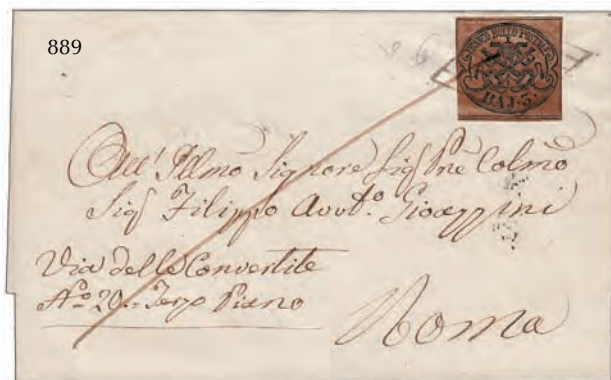 889
FRANCO BOLLO POSTALE
BAJ. 3.
All' Illmo Signore Sig Pne Colmo
Sig Filippo Avvto.
Via delle Convertite
No. 20. Terzo Piano
Roma